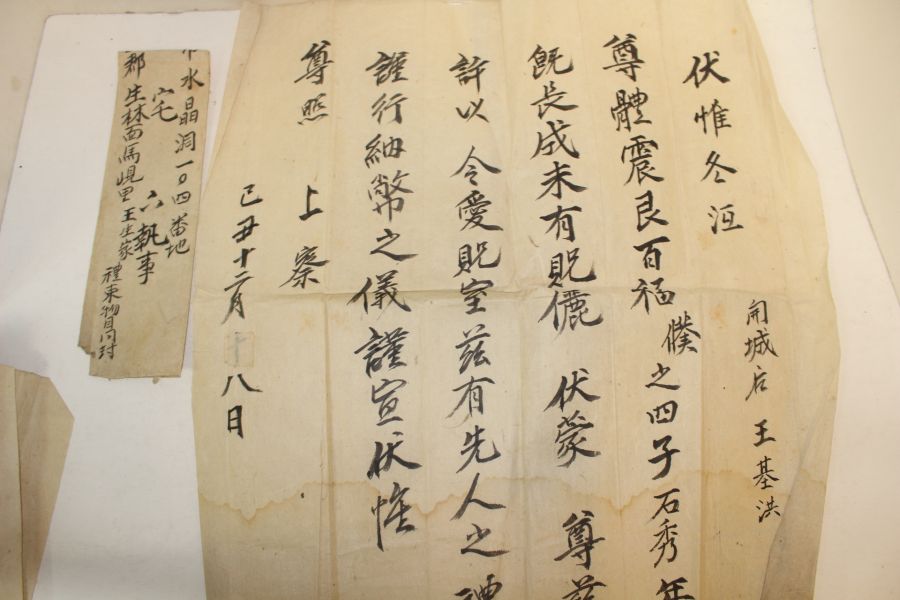 開城后 王基洪
伏惟冬沍
尊體震艮百福 僕之四子石秀年
旣長成未有贶儷 伏蒙 尊
許以 令愛贶室茲有先人之禮
謹行納幣之儀謹宣伏惟
尊照 上察
己丑十二月十八日
水晶洞一〇四番地
宅 六執事
郡生林面馬峴里王生家 禮柬物目同封